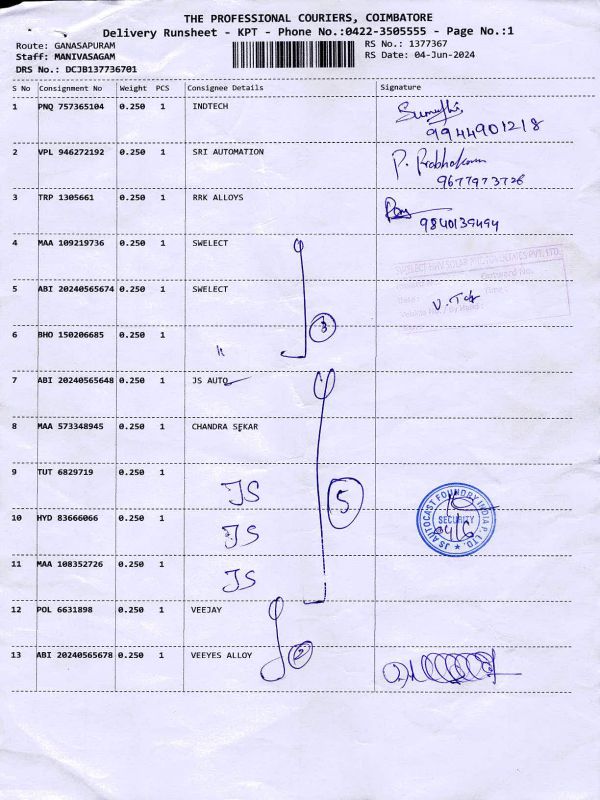 THE PROFESSIONAL COURIERS, COIMBATORE
Delivery Runsheet - KPT - Phone No.:0422-3505555 - Page No.:1
Route: GANASAPURAM
Staff: MANIVASAGAM
DRS No.: DCJB137736701
RS No.: 1377367
RS Date: 04-Jun-2024
S No Consignment No Weight PCS Consignee Details Signature
1 PNQ 757365104 0.250 1 INDTECH
9944901218
2 VPL 946272192 0.250 1 SRI AUTOMATION
P. Prabhakaran
9677973726
3 TRP 1305661 0.250 1 RRK ALLOYS
9840139494
4 MAA 109219736 0.250 1 SWELECT
5 ABI 20240565674 0.250 1 SWELECT
6 BHO 150206685 0.250 1
3
7 ABI 20240565648 0.250 1 JS AUTO
8 MAA 573348945 0.250 1 CHANDRA SEKAR
9 TUT 6829719 0.250 1 JS
10 HYD 83666066 0.250 1 JS
5
JS AUTOCAST FOUNDRY INDIA P. LTD.
SECURITY
11 MAA 108352726 0.250 1 JS
12 POL 6631898 0.250 1 VEEJAY
13 ABI 20240565678 0.250 1 VEEYES ALLOY
2